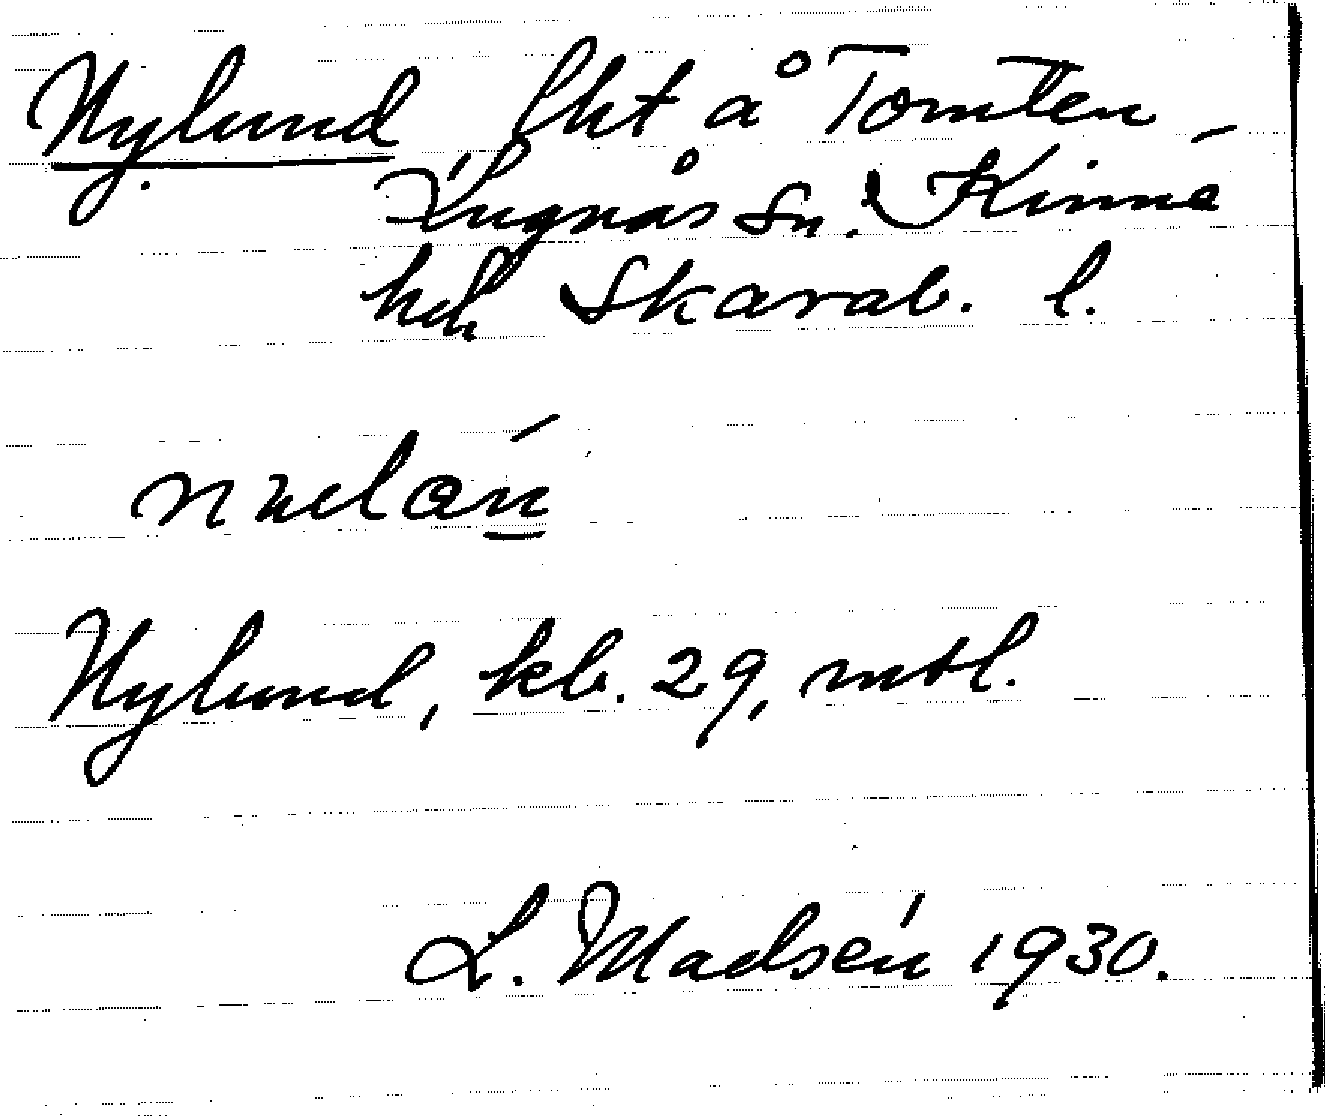 Nylund, fht å Tomten,
Lugnås sn. Kinne
hd. Skarab. l.
Nylund, kb. 29, mtl.
L. Madsén 1930.